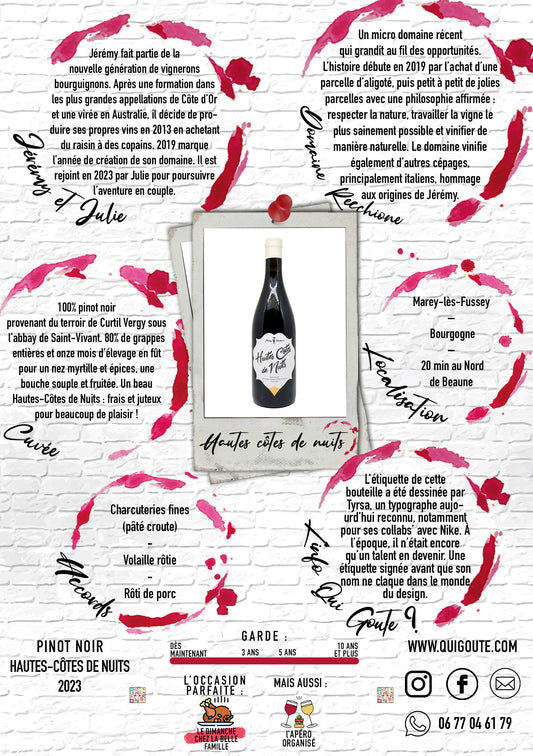 Jérémy fait partie de la
nouvelle génération de vignerons
bourguignons. Après une formation dans
les plus grandes appellations de Côte d'Or
et une virée en Australie, il décide de pro-
duire ses propres vins en 2013 en achetant
du raisin à des copains. 2019 marque
l'année de création de son domaine. Il est
rejoint en 2023 par Julie pour poursuivre
l'aventure en couple.
Jérémy et Julie
Un micro domaine récent
qui grandit au fil des opportunités.
L'histoire débute en 2019 par l'achat d'une
parcelle d'aligoté, puis petit à petit de jolies
parcelles avec une philosophie affirmée :
respecter la nature, travailler la vigne le
plus sainement possible et vinifier de
manière naturelle. Le domaine vinifie
également d'autres cépages,
principalement italiens, hommage
aux origines de Jérémy.
Domaine Recchione
100% pinot noir
provenant du terroir de Curtil Vergy sous
l'abbay de Saint-Vivant. 80% de grappes
entières et onze mois d'élevage en fût
pour un nez myrtille et épices, une
bouche souple et fruitée. Un beau
Hautes-Côtes de Nuits : frais et juteux
pour beaucoup de plaisir !
Cuvée
Hautes Côtes
de Nuits
Hautes côtes de nuits
Marey-lès-Fussey
–
Bourgogne
–
20 min au Nord
de Beaune
Localisation
Charcuteries fines
(pâté croute)
–
Volaille rôtie
–
Rôti de porc
Accords
L'étiquette de cette
bouteille a été dessinée par
Tyrsa, un typographe aujo-
urd'hui reconnu, notamment
pour ses collabs' avec Nike. À
l'époque, il n'était encore
qu'un talent en devenir. Une
étiquette signée avant que son
nom ne claque dans le monde
du design.
L'info Qui Goute ?
PINOT NOIR
HAUTES-CÔTES DE NUITS
2023
GARDE :
DÈS
MAINTENANT
3 ANS
5 ANS
10 ANS
ET PLUS
L'OCCASION
PARFAITE :
LE DIMANCHE
CHEZ LA BELLE
FAMILLE
MAIS AUSSI :
L'APÉRO
ORGANISÉ
WWW.QUIGOUTE.COM
06 77 04 61 79